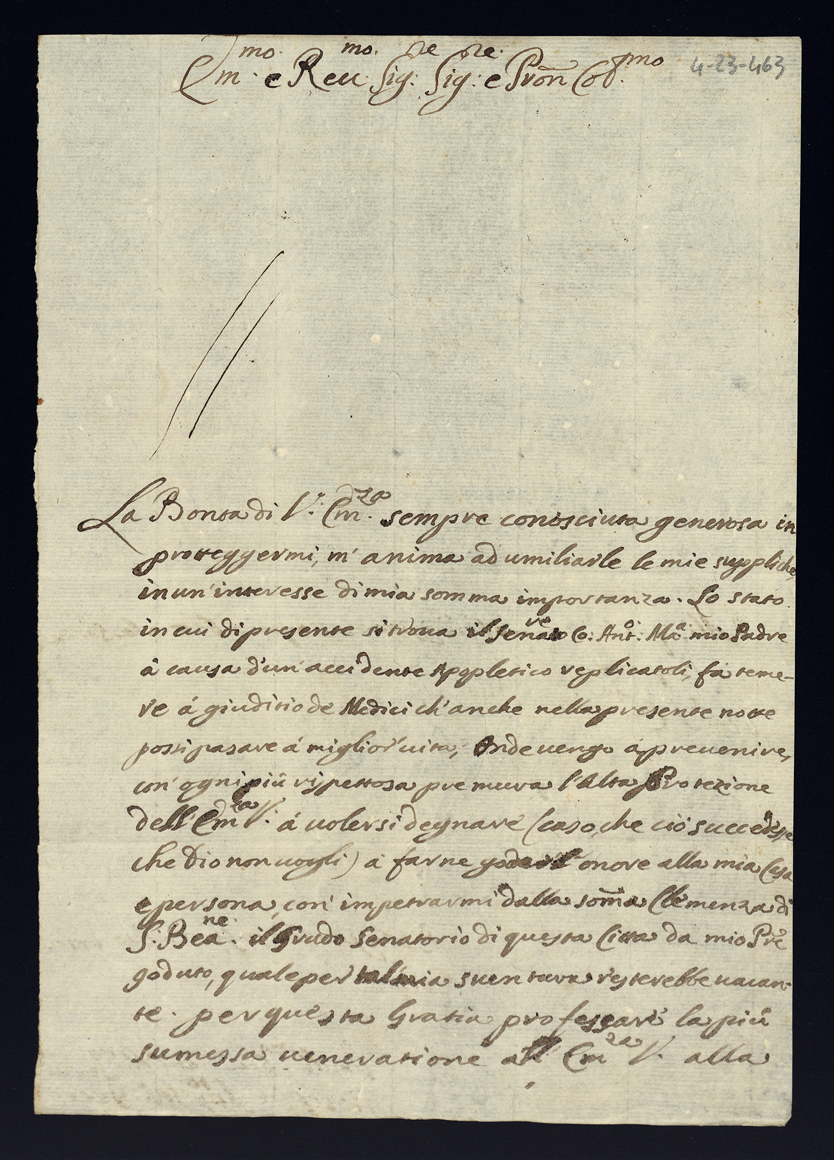 Em.mo e Reu.mo Sig.re Sig.re e Pron Col.mo
4-23-463
La Bontà di V. Em.za sempre conosciuta generosa in
proteggermi, m'anima ad umiliarle le mie suppliche,
in un'interesse di mia somma importanza. Lo stato
in cui di presente si troua il Senat.re Co: Ant.o M.a mio Padre
à causa d'un'accidente Apopletico replicatoli, fà teme-
re á giuditio de Medici ch'anche nella presente notte
possi pasare á miglior uita, Onde uengo á preuenire,
con ogni più rispettosa premura l'Alta Protezione
dell'Em.za V. á uolersi degnare (caso che ciò succedesse
che Dio non uogli) á farne goder l'onore alla mia Casa
e persona, con impetrarmi dalla somã Clemenza di
S. Bea.ne il Grado Senatorio di questa Città da mio Prẽ
goduto, quale per tal mia suentura resterebbe uacan-
te. per questa Gratia professarò la più
sumessa ueneratione all'Em.za V. alla